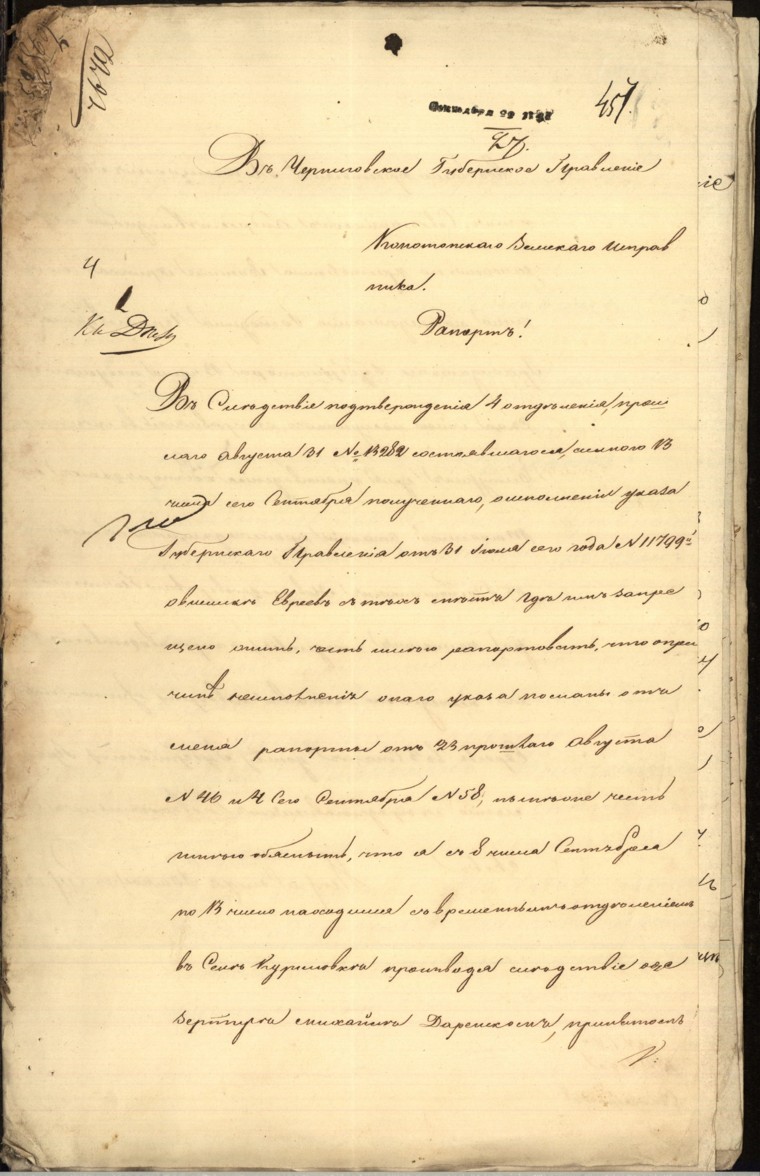 457.
Въ Черниговское Губернское Правленіе
Конотопскаго Земскаго Исправ
ника.
4
Рапортъ!
Въ Следствіе подтвержденія 4 отдѣленія, прош
лаго Августа 31 № 13282 состоявшагося, а мною 13
числа сего Сентября полученнаго, о исполненіи указа
Губернскаго Правленія отъ 31 Іюля сего года № 11799го
о высылкѣ Евреевъ съ тѣхъ мѣстъ гдѣ имъ запре
щено жить, честь имѣю рапортовать, что о при
чинѣ неисполненія онаго указа посланы отъ
меня рапорты отъ 23 прошлаго Августа
№ 46 и 4 Сего Сентября № 58,
что я съ 8 числа Сентября
по 13 число находился съ временнымъ отделеніемъ
въ Селѣ Куриловкѣ производя следствіе
Даренскомъ,